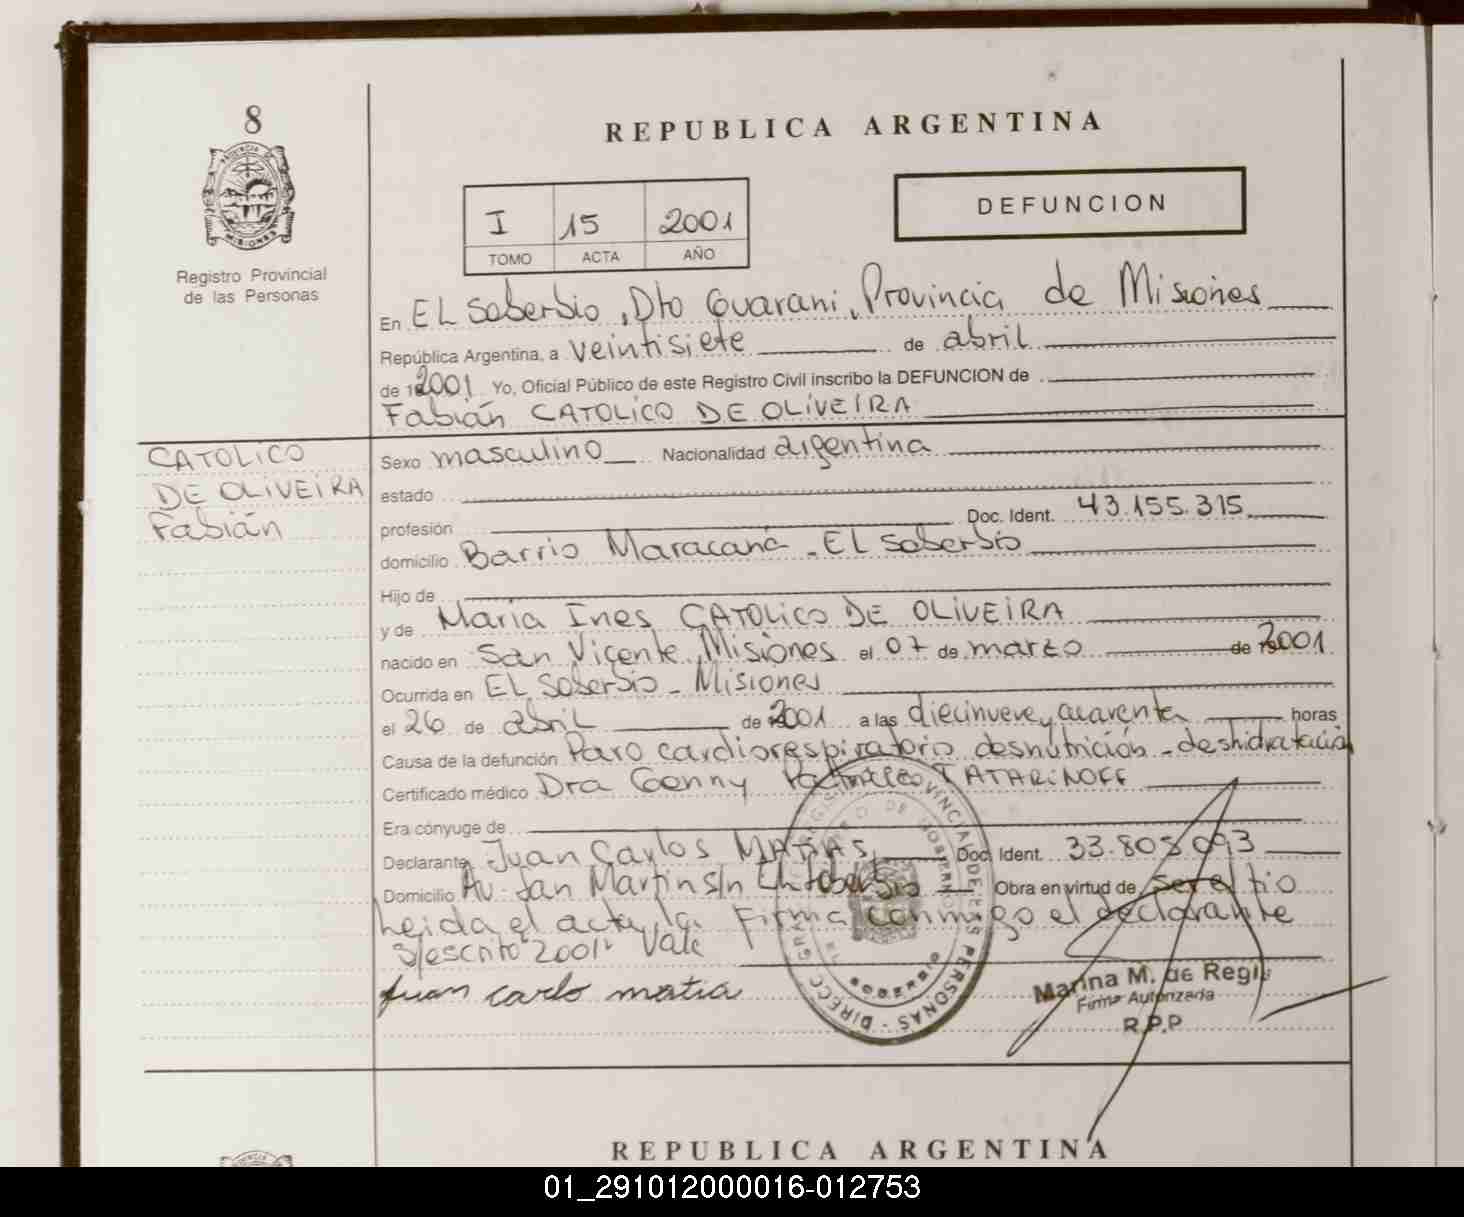 8
PROVINCIA
MISIONES
Registro Provincial
de las Personas
REPUBLICA ARGENTINA
I 15 2001
TOMO ACTA AÑO
DEFUNCION
En EL Soberbio, Dto Guarani, Provincia de Misiones
República Argentina, a veintisiete de abril
de 2001 Yo, Oficial Público de este Registro Civil inscribo la DEFUNCION de
Fabián CATOLICO DE OLIVEIRA
CATOLICO
DE OLIVEIRA
Fabián
Sexo masculino Nacionalidad argentina
estado
profesión Doc. Ident. 43.155.315
domicilio Barrio Maracaná - EL Soberbio
Hijo de
y de Maria Ines CATOLICO DE OLIVEIRA
nacido en San Vicente, Misiones el 07 de marzo de 2001
Ocurrida en EL Soberbio - Misiones
el 26 de abril de 2001 a las diecinueve y cuarenta horas
Causa de la defunción Paro cardiorespiratorio desnutrición - deshidratación
Certificado médico Dra Genny TATARINOFF
Era cónyuge de
Declarante Juan Carlos MATIAS Doc. Ident. 33.805.093
Domicilio Av. San Martin s/n El Soberbio Obra en virtud de ser el tio
Leida el acta, la firma conmigo el declarante
s/escrito "2001" Vale
Juan carlo matia
Marina M. de Regis
Firma Autorizada
R.P.P
REPUBLICA ARGENTINA
01_291012000016-012753